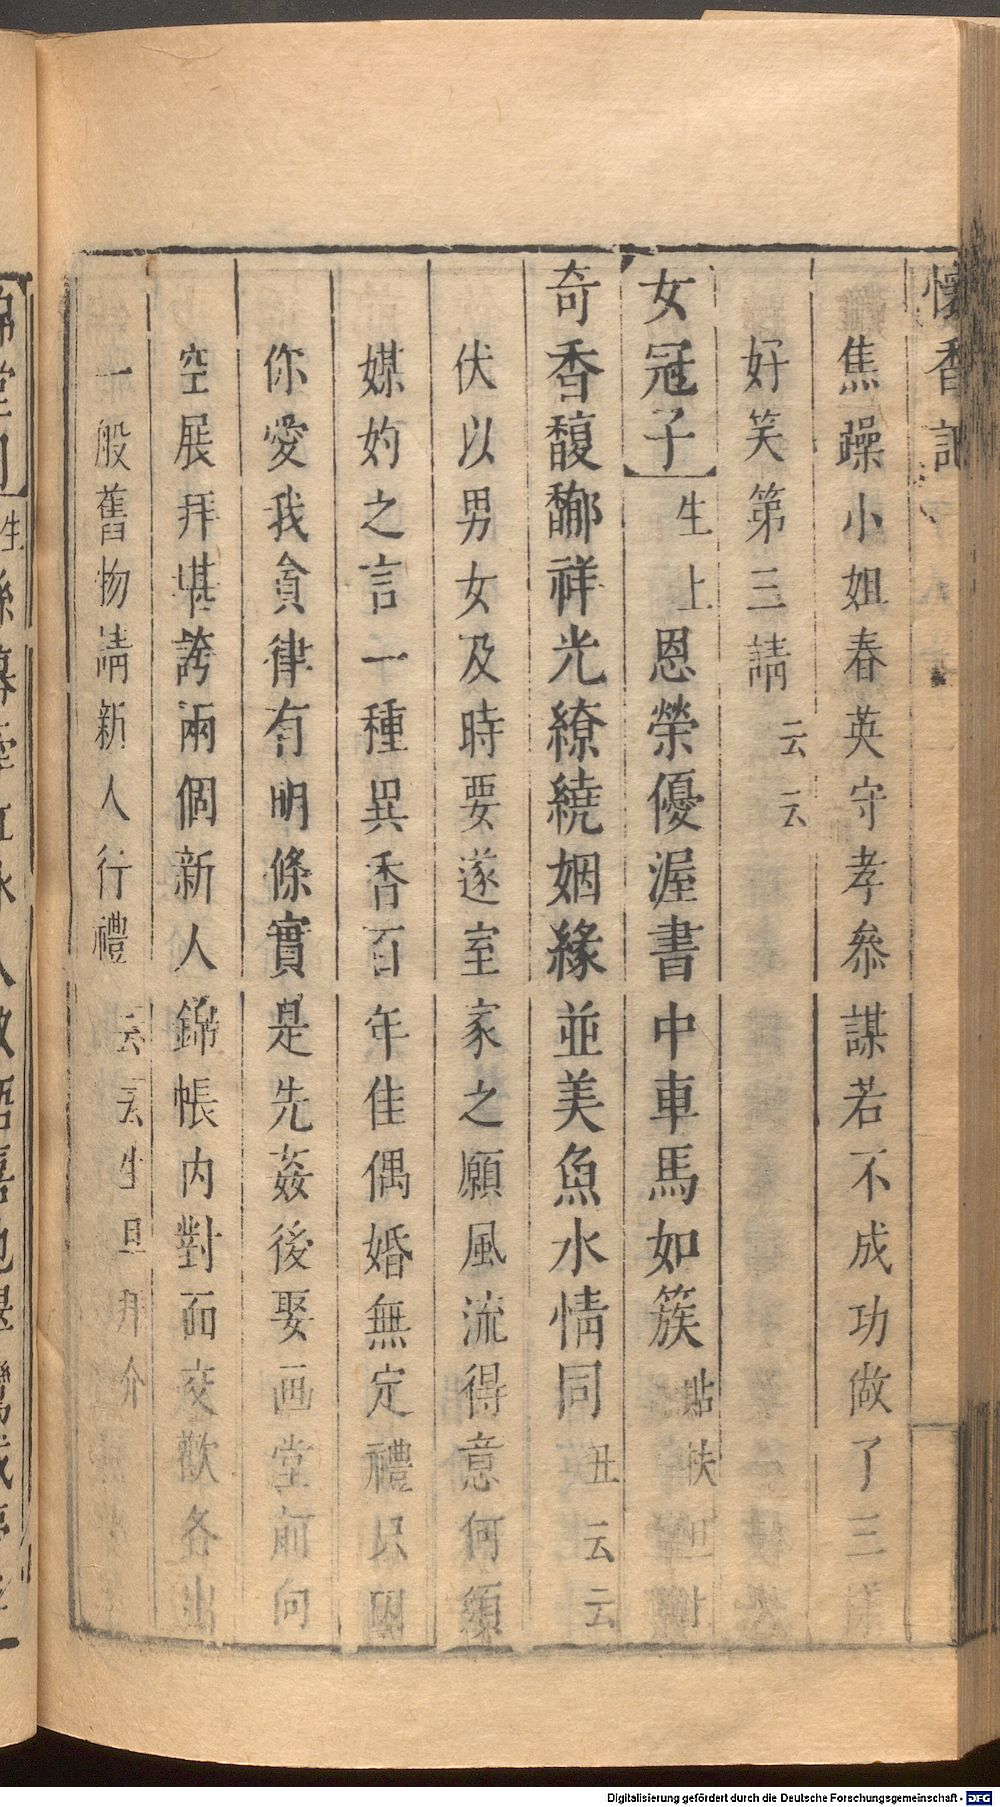 懷香記
焦躁小姐春英守孝叅謀若不成功做了三
好笑第三請云云
女冠子生上恩榮優渥書中車馬如簇貼扶旦
奇香馥郁祥光繚繞姻緣並美魚水情同丑云云
伏以男女及時要遂室家之願風流得意何須
媒妁之言一種異香百年佳偶婚無定禮只因
你愛我貪律有明條實是先姦後娶画堂前向
空展拜堪誇兩個新人錦帳内對面交歡各出
一般舊物請新人行禮云云生旦拜介
Digitalisierung gefördert durch die Deutsche Forschungsgemeinschaft - DFG